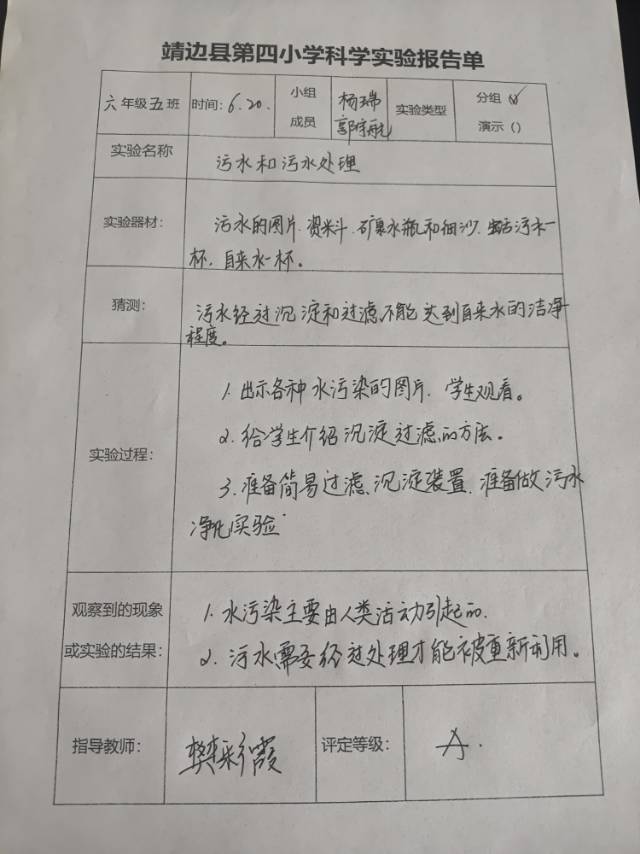 靖边县第四小学科学实验报告单
六年级五班 时间:6.20. 小组成员 杨瑞 郭宇航 实验类型 分组(√) 演示()
实验名称 污水和污水处理
实验器材: 污水的图片、资料、矿泉水瓶和细沙、污水一
杯,自来水一杯。
猜测: 污水经过沉淀和过滤不能达到自来水的洁净
程度。
实验过程:
1. 出示各种水污染的图片,学生观看。
2. 给学生介绍沉淀过滤的方法。
3. 准备简易过滤、沉淀装置,准备做污水
净化实验
观察到的现象
或实验的结果:
1. 水污染主要由人类活动引起的.
2. 污水需要经过处理才能被重新利用。
指导教师: 樊彩霞 评定等级: A.